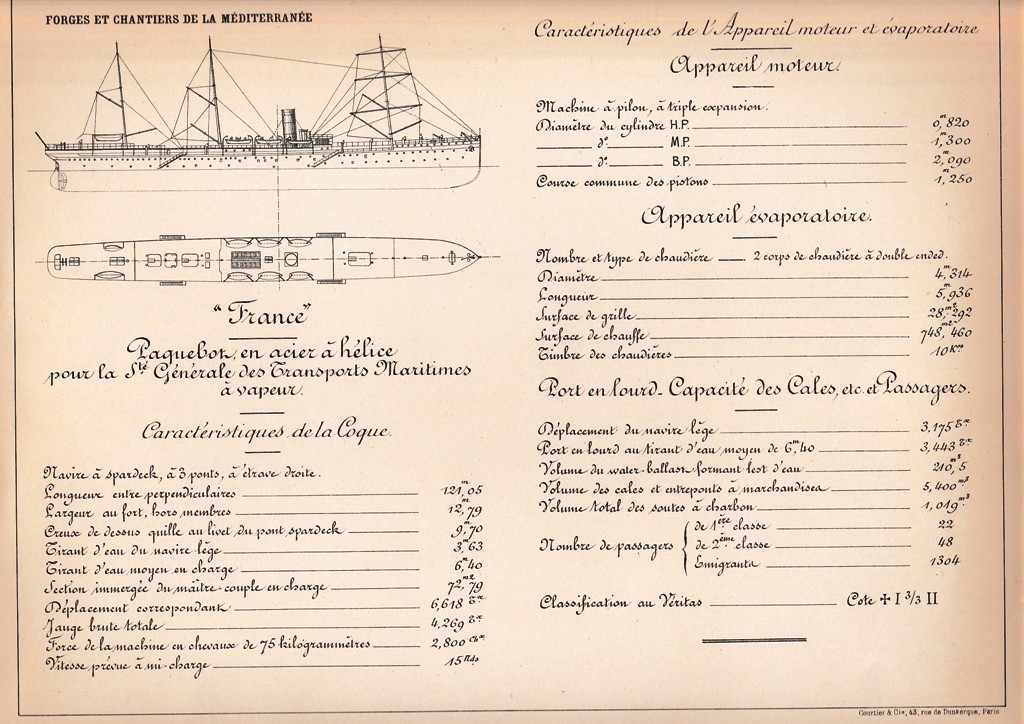 FORGES ET CHANTIERS DE LA MÉDITERRANÉE
"France"
Paquebot, en acier à hélice
pour la S.té Générale des Transports Maritimes
à vapeur.
Caractéristiques de la Coque.
Navire à spardeck, à 3 ponts, à étrave droite.
Longueur entre perpendiculaires 121,m05
Largeur au fort, hors membres 12,m79
Creux de dessus quille au livet du pont spardeck 9,m70
Tirant d'eau du navire lège 3,m63
Tirant d'eau moyen en charge 6,m40
Section immergée du maître couple en charge 72,m279
Déplacement correspondant 6,618 Tx
Jauge brute totale 4,269 Tx
Force de la machine en chevaux de 75 kilogrammètres 2,800 Chx
Vitesse prévue à mi-charge 15 Nds
Caractéristiques de l'Appareil moteur et évaporatoire
Appareil moteur.
Machine à pilon, à triple expansion.
Diamètre du cylindre H.P. 0,m820
d.o M.P. 1,m300
d.o B.P. 2,m090
Course commune des pistons 1,m250
Appareil évaporatoire.
Nombre et type de chaudière 2 corps de chaudière à double ended.
Diamètre 4,m314
Longueur 5,m936
Surface de grille 28,m2292
Surface de chauffe 748,m2460
Timbre des chaudières 10 Kos
Port en lourd - Capacité des Cales, etc. et Passagers.
Déplacement du navire lège 3,175 Tx
Port en lourd au tirant d'eau moyen de 6,m40 3,443 Tx
Volume du water-ballast formant lest d'eau 210,m35
Volume des cales et entreponts à marchandises 5,400 m3
Volume total des soutes à charbon 1,019 m3
Nombre de passagers
de 1ère classe 22
de 2ème classe 48
Emigrants 1304
Classification au Véritas Cote ✚ I 3/3 II
Courtier & Cie, 43, rue de Dunkerque, Paris